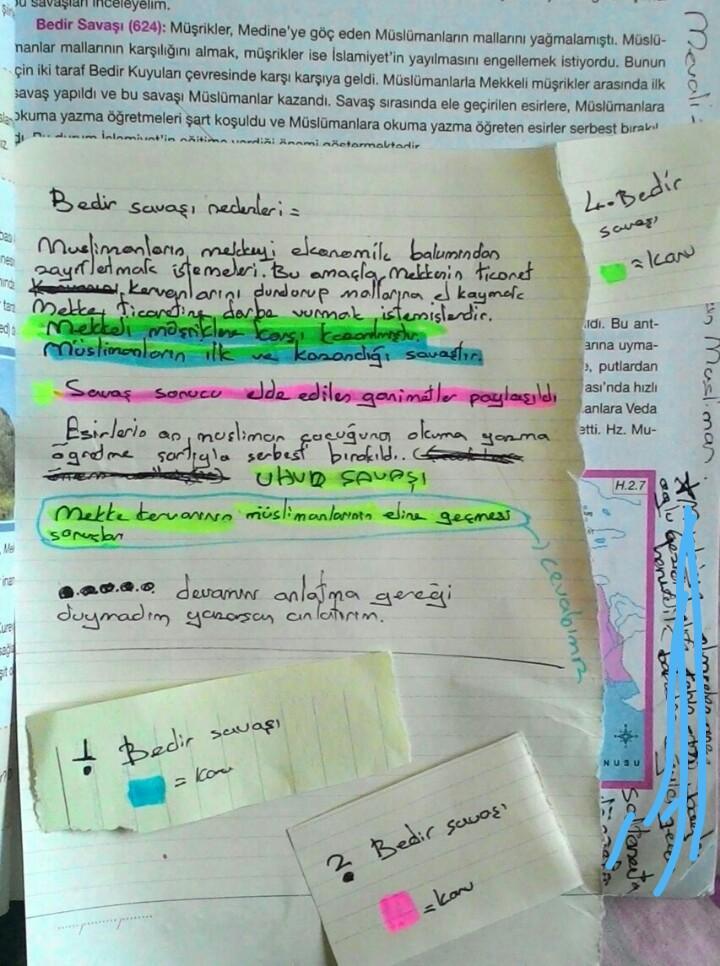 bu savaşları inceleyelim.
Bedir Savaşı (624): Müşrikler, Medine'ye göç eden Müslümanların mallarını yağmalamıştı. Müslü-
manlar mallarının karşılığını almak, müşrikler ise İslamiyet'in yayılmasını engellemek istiyordu. Bunun
için iki taraf Bedir Kuyuları çevresinde karşı karşıya geldi. Müslümanlarla Mekkeli müşrikler arasında ilk
savaş yapıldı ve bu savaşı Müslümanlar kazandı. Savaş sırasında ele geçirilen esirlere, Müslümanlara
okuma yazma öğretmeleri şart koşuldu ve Müslümanlara okuma yazma öğreten esirler serbest bırakıl
dı. Bu durum İslamiyet'in eğitime verdiği önemi göstermektedir.
Bedir savaşı nedenleri =
Muslimanların mekkeyi ekonomik bakımından
zayıfletmak istemeleri. Bu amaçla, Mekkenin ticaret
kervanlarını durdurup mallarına el koymak
Mekke ticaretine darbe vurmak istemişlerdir.
Mekkeli müşriklere karşı kazanılmıştır.
Müslimanların ilk ve kazandığı savaştır.
Savaş sonucu elde edilen ganimetler paylaşıldı
Esirlerin on musliman çocuğuna okuma yazma
öğretme şartıyla serbest bırakıldı..
UHUD SAVAŞI
Mekke kervanının müslimanlarının eline geçmesi
sonuçları
cevabımız
devamını anlatma gereği
duymadım yazarsan anlatırım.
4. Bedir
savaşı
= konu
ıldı. Bu ant-
arına uyma-
, putlardan
ası'nda hızlı
anlara Veda
etti. Hz. Mu-
H.2.7
NUSU
1. Bedir savaşı
= konu
2. Bedir savaşı
= konu
Musliman